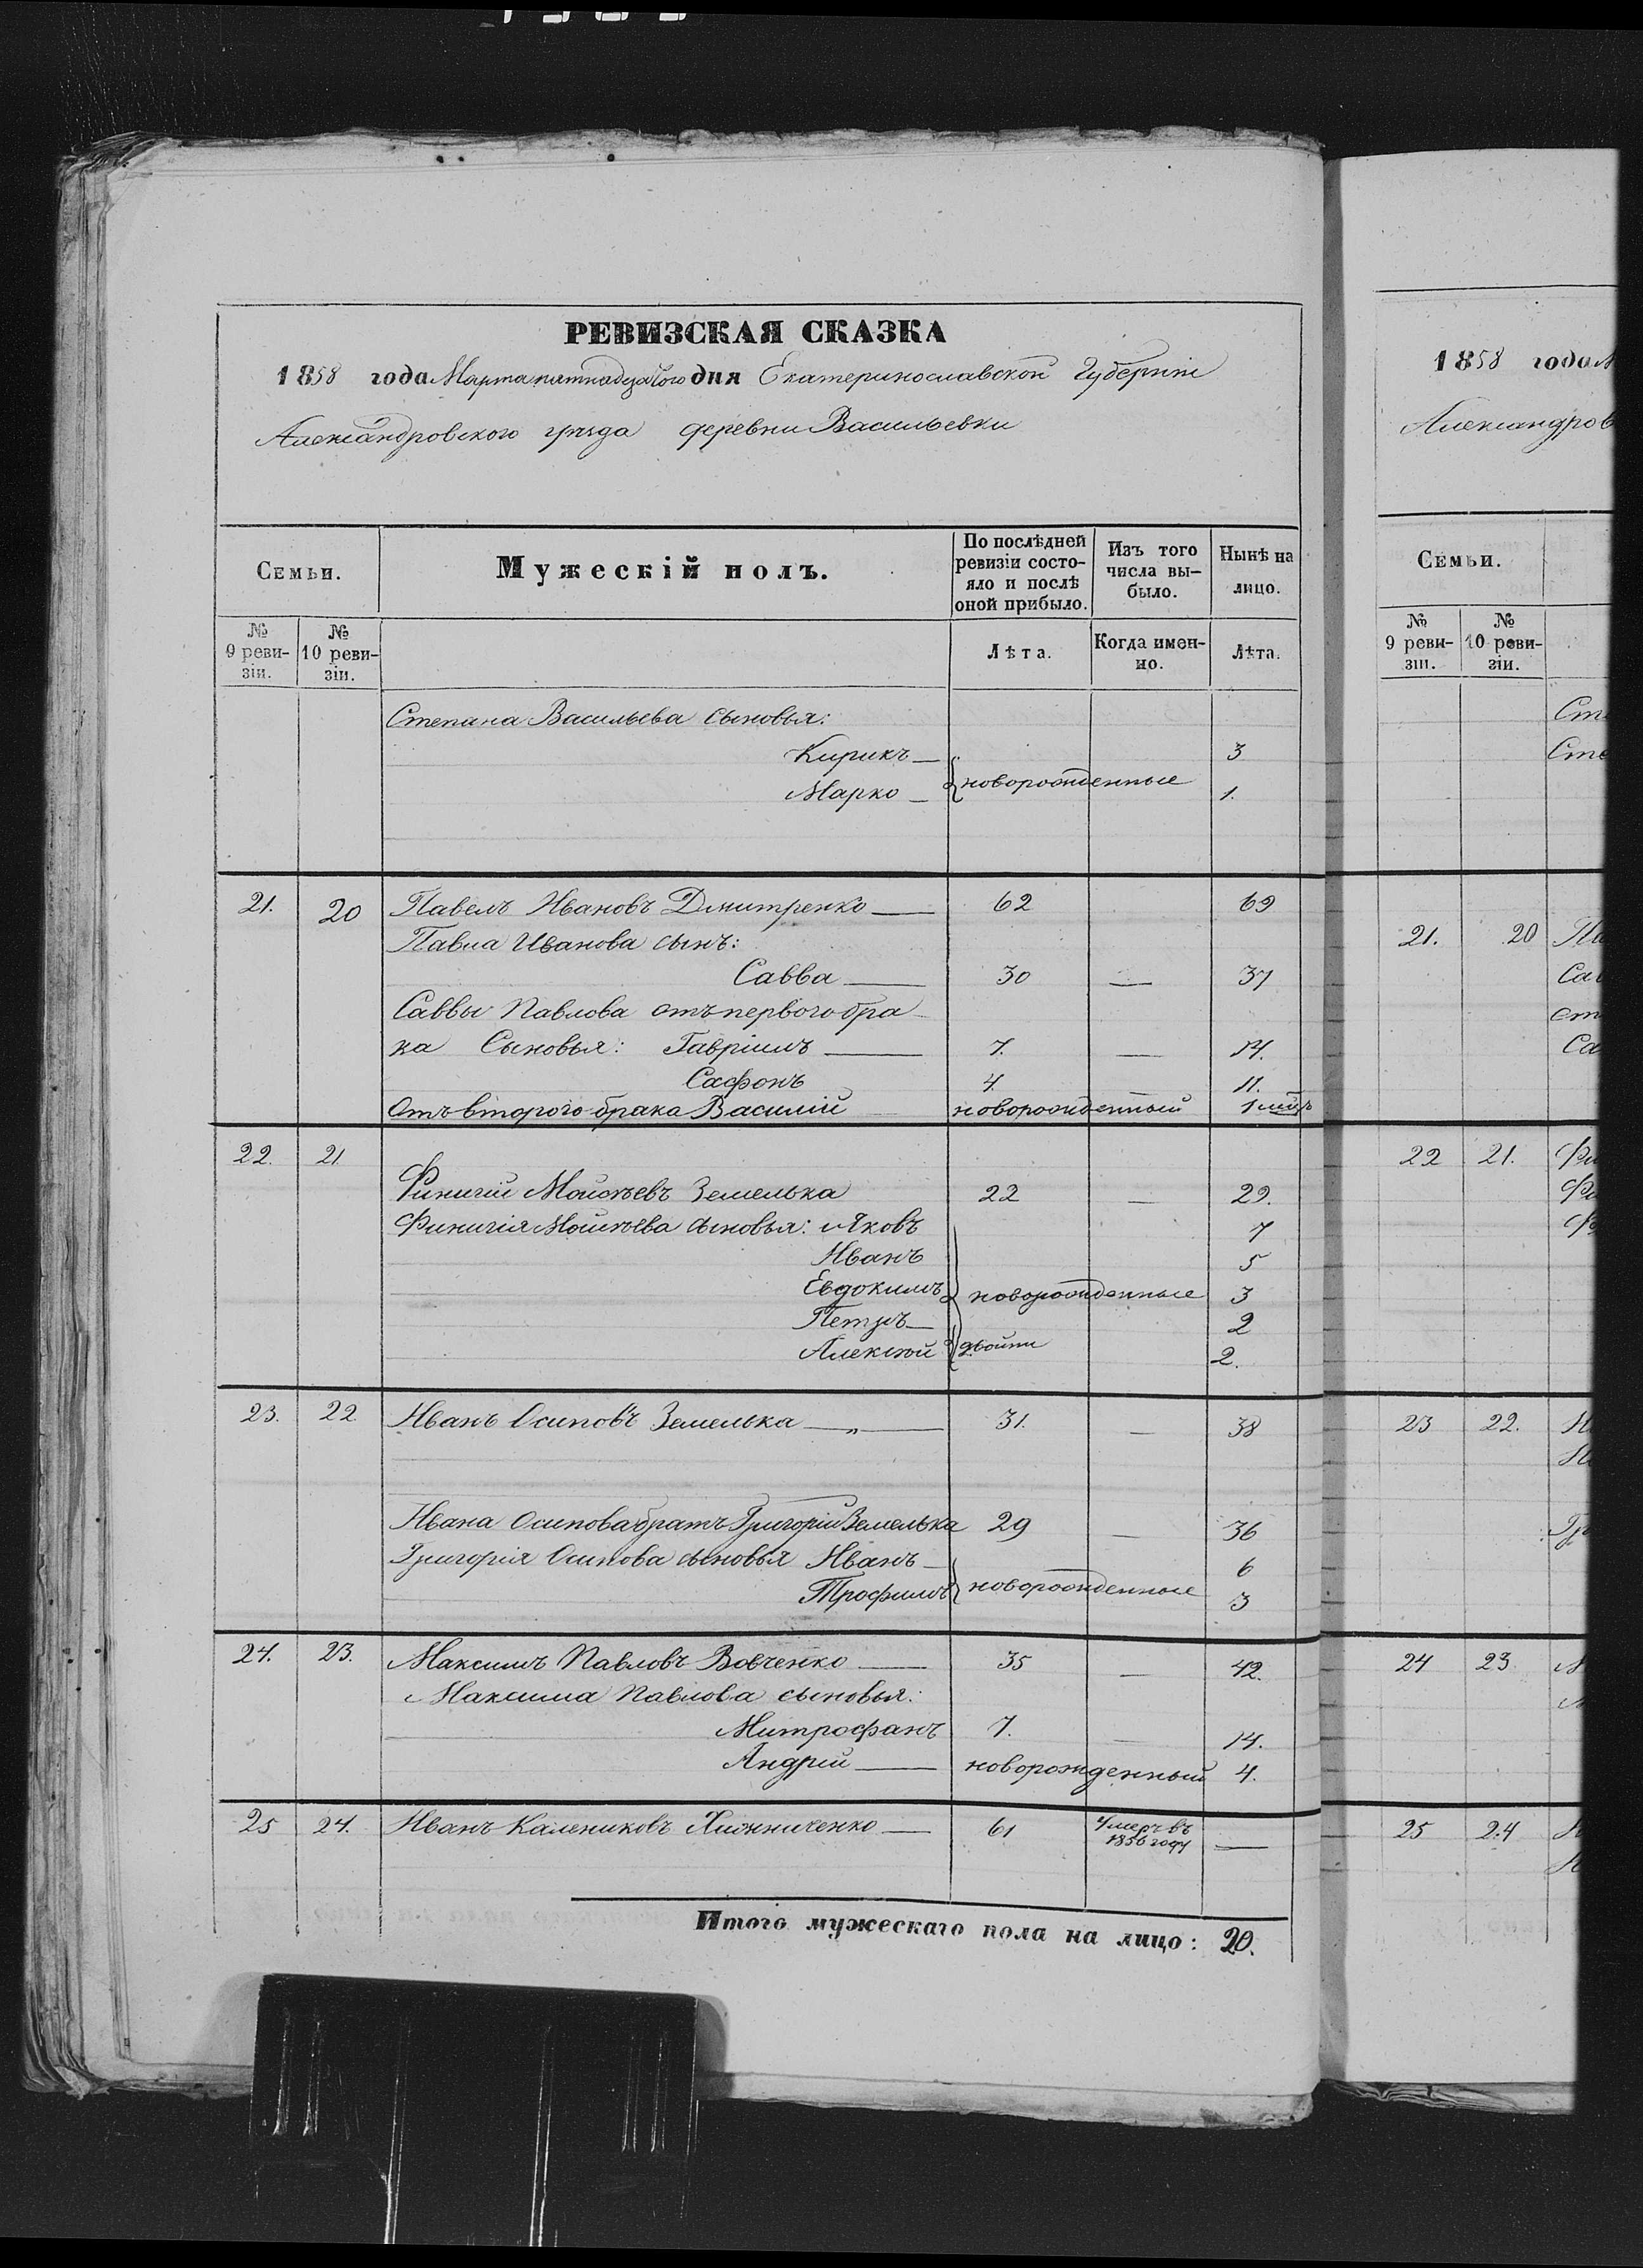 РЕВИЗСКАЯ СКАЗКА
1858 года Марта пятнадцатого дня Екатеринославской Губерніи
Александровского уезда деревни Васильевки
Семьи.
Мужескій полъ.
По послѣдней ревизіи состо-
яло и послѣ
оной прибыло.
Изъ того
числа вы-
было.
Нынѣ на
лицо.
№
9 реви-
зіи.
№
10 реви-
зіи.
Лѣта.
Когда имен-
но.
Лѣта.
Степана Васильева сыновья:
Кирикъ — 3
Марко — новорожденные 1.
21. 20 Павелъ Ивановъ Дмитренко — 62 69
Павла Иванова сынъ:
Савва — 30 — 37
Саввы Павлова отъ первого бра
ка Сыновья: Гавріилъ — 7. — 14.
Сафонъ 4. 11.
Отъ второго брака Василій новорожденный 1 мцъ
22. 21. Финигій Мойсѣевъ Земелька 22 — 29.
Финигія Мойсѣева сыновья: Яковъ 7
Иванъ 5
Евдокимъ новорожденные 3
Петръ — 2
Алексѣй двойни 2.
23. 22 Иванъ Осиповъ Земелька — „ — 31. — 38
Ивана Осипова братъ Григорій Земелька 29 — 36
Григорія Осипова сыновья Иванъ — 6
Трофимъ новорожденные 3
24. 23. Максимъ Павловъ Вовченко — 35 — 42.
Максима Павлова сыновья:
Митрофанъ 7. — 14.
Андрій — новорожденный 4.
25 24. Иванъ Калениковъ — 61 Умеръ въ
1856 году —
Итого мужескаго пола на лицо: 20.
1858 года М
Александров
Семьи.
№
9 реви-
зіи.
№
10 реви-
зіи.
Сте
Сте
21. 20 Па
Сав
от
Са
22 21. Фи
Фи
Фи
23 22. И
И
Гр
24 23 М
М
25 24 И
И